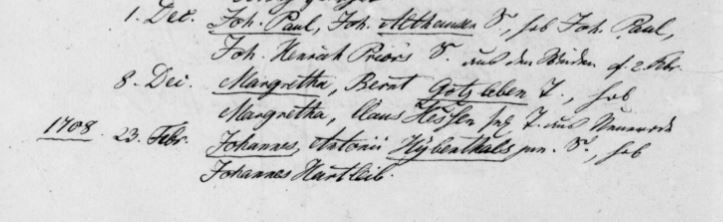 1. Dec. Joh. Paul, Joh. Althansen S., heb Joh. Paul,
Joh. Henrich Priors S. aus den Weiden g. 2. Febr.
8. Dec. Margretha, Bernt Gotzleben T., heb
Margretha, Claus Hessen sel. T. aus
1708. 23. Febr. Johannes, Antonii Hybenthals jun. S., heb
Johannes Hartleib.